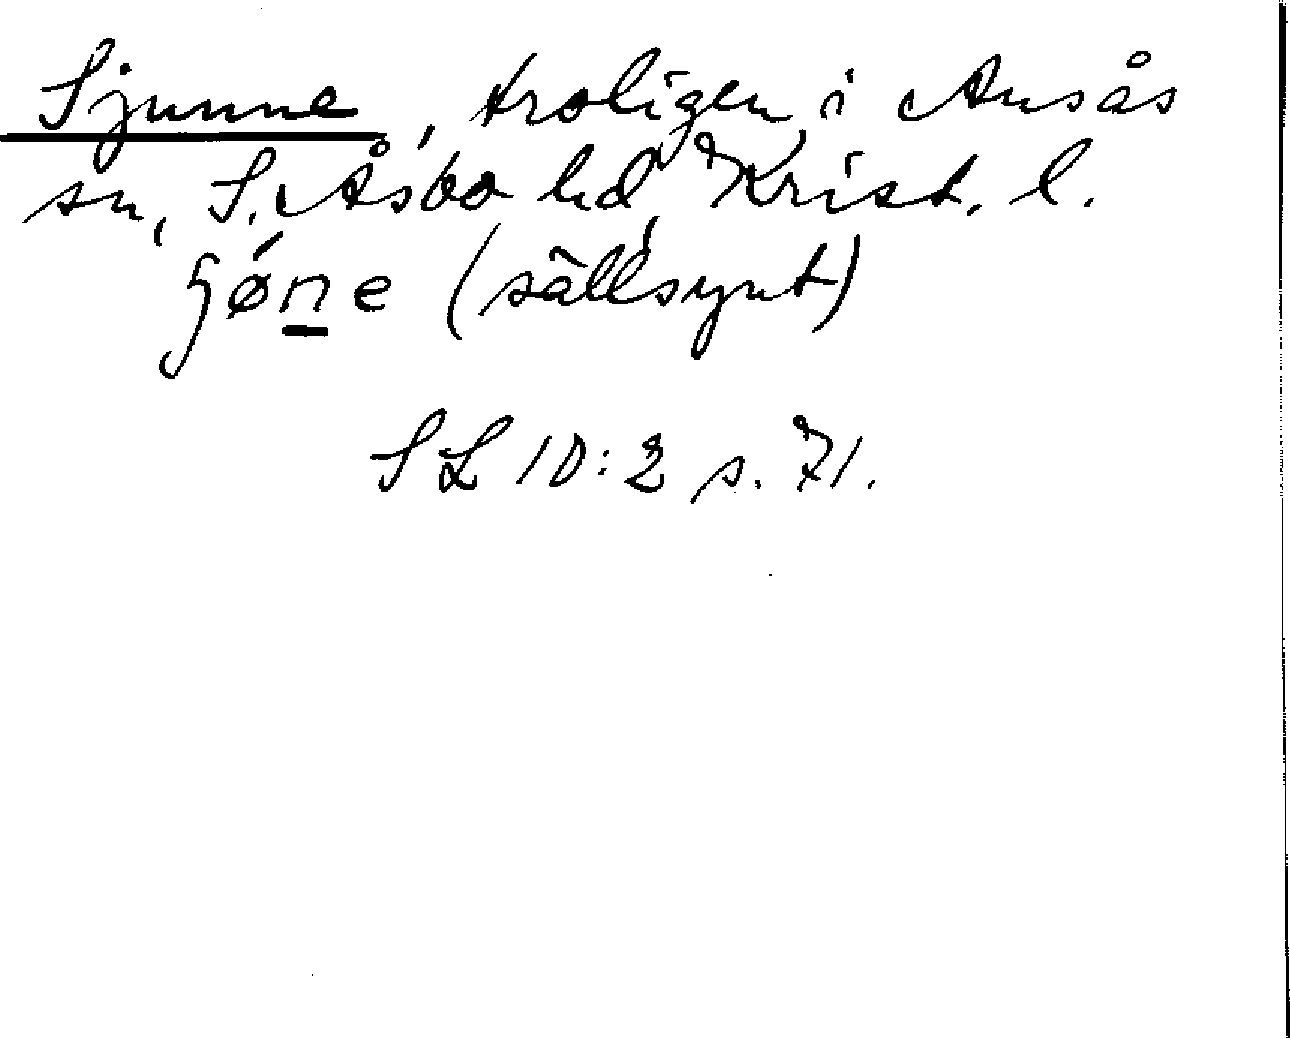 Sjunne, troligen i Ausås
sn, S. Åsbo hd, Krist. l.
ʃǿn̲e (sällsynt)
SL 10:2 s. 71.